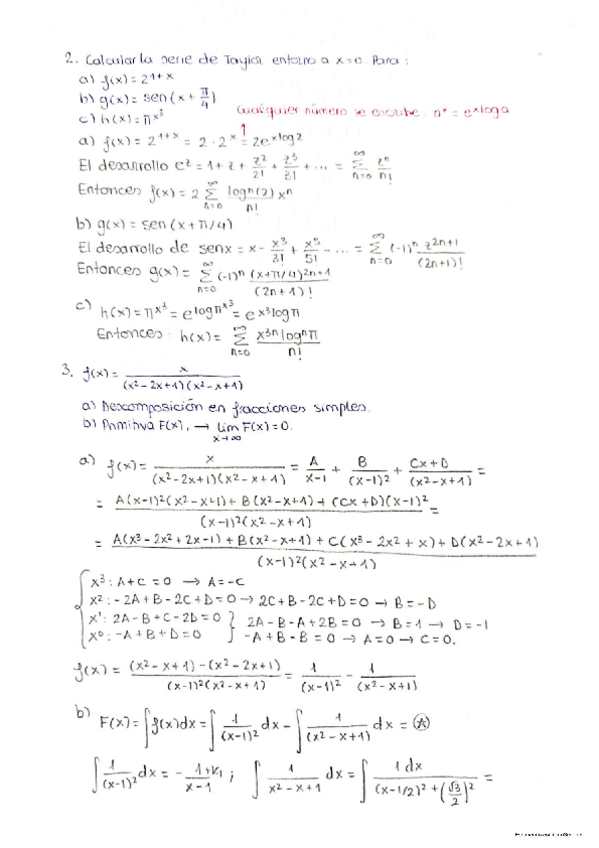 2. Calcular la serie de Taylor entorno a x=0. Para:
a) f(x) = 2^{1+x}
b) g(x) = sen(x + π/4)
c) h(x) = π^{x^3}
Cualquier número se escribe: a^x = e^{x log a}
a) f(x) = 2^{1+x} = 2 · 2^x = 2e^{x log 2}
El desarrollo e^z = 1 + z + z^2/2! + z^3/3! + ... = ∑_{n=0}^{∞} z^n/n!
Entonces f(x) = 2 ∑_{n=0}^{∞} log^n(2) x^n / n!
b) g(x) = sen(x + π/4)
El desarrollo de sen x = x - x^3/3! + x^5/5! - ... = ∑_{n=0}^{∞} (-1)^n z^{2n+1}/(2n+1)!
Entonces g(x) = ∑_{n=0}^{∞} (-1)^n (x+π/4)^{2n+1}/(2n+1)!
c) h(x) = π^{x^3} = e^{log π^{x^3}} = e^{x^3 log π}
Entonces: h(x) = ∑_{n=0}^{∞} x^{3n} log^n π / n!
3. f(x) = x / (x^2-2x+1)(x^2-x+1)
a) Descomposición en fracciones simples.
b) Primitiva F(x), → lim_{x→∞} F(x) = 0.
a) f(x) = x / (x^2-2x+1)(x^2-x+1) = A/(x-1) + B/(x-1)^2 + (Cx+D)/(x^2-x+1) =
= A(x-1)^2(x^2-x+1) + B(x^2-x+1) + (Cx+D)(x-1)^2 / (x-1)^2(x^2-x+1) =
= A(x^3-2x^2+2x-1) + B(x^2-x+1) + C(x^3-2x^2+x) + D(x^2-2x+1) / (x-1)^2(x^2-x+1)
x^3: A+C = 0 → A = -C
x^2: -2A+B-2C+D = 0 → 2C+B-2C+D = 0 → B = -D
x^1: 2A-B+C-2D = 0 } 2A-B-A+2B = 0 → B = 1 → D = -1
x^0: -A+B+D = 0 } -A+B-B = 0 → A = 0 → C = 0.
f(x) = (x^2-x+1)-(x^2-2x+1) / (x-1)^2(x^2-x+1) = 1/(x-1)^2 - 1/(x^2-x+1)
b) F(x) = ∫f(x)dx = ∫ 1/(x-1)^2 dx - ∫ 1/(x^2-x+1) dx = Ⓐ
∫ 1/(x-1)^2 dx = - 1+K_1/x-1 ; ∫ 1/x^2-x+1 dx = ∫ 1 dx/(x-1/2)^2+(√3/2)^2 =